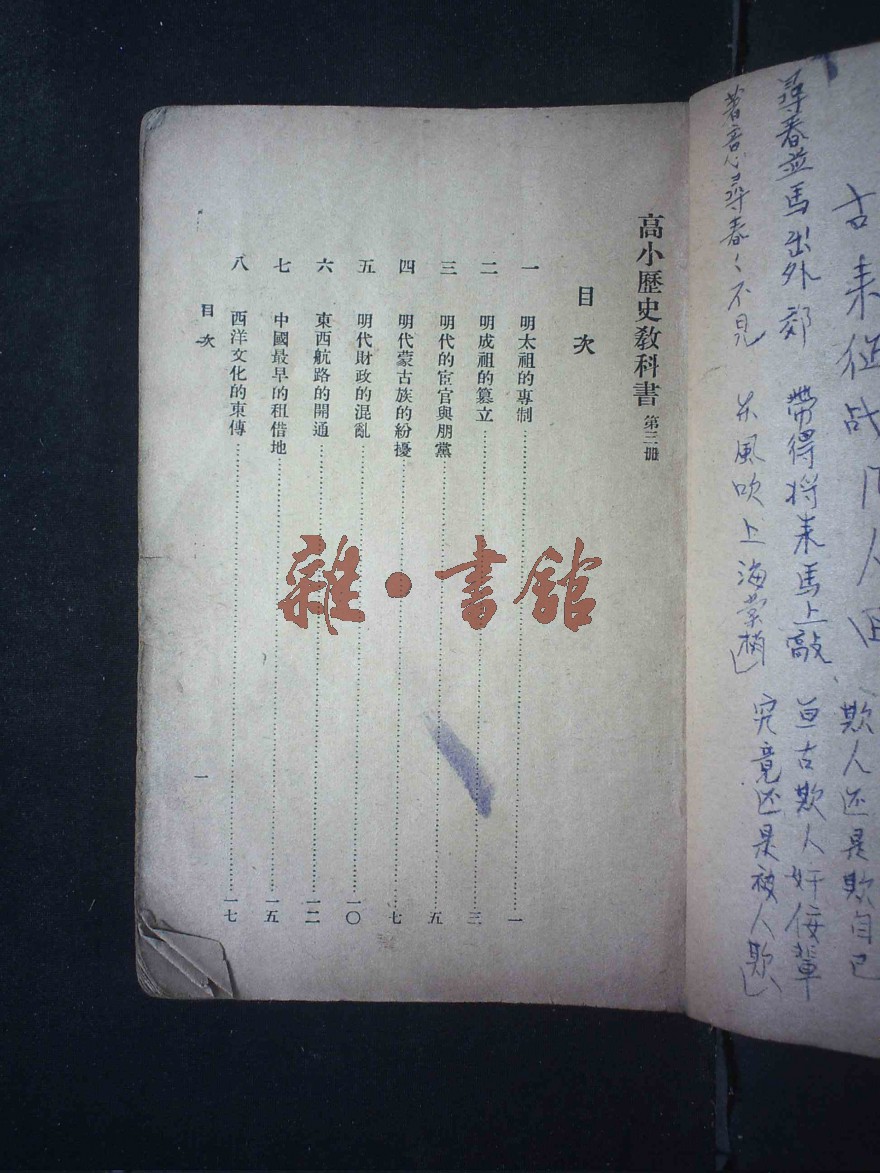 古来征战几人回
欺人还是欺自己
尋春並馬出外郊
帶得将来馬上敲
亘古欺人奸佞輩
著意尋春々不見
东風吹上海棠梢
究竟还是被人欺
高小歷史敎科書 第三册
目次
一 明太祖的專制……一
二 明成祖的篡立……三
三 明代的宦官與朋黨……五
四 明代蒙古族的紛擾……七
五 明代財政的混亂……一〇
六 東西航路的開通……一二
七 中國最早的租借地……一五
八 西洋文化的東傳……一七
目次
一
雜·書館